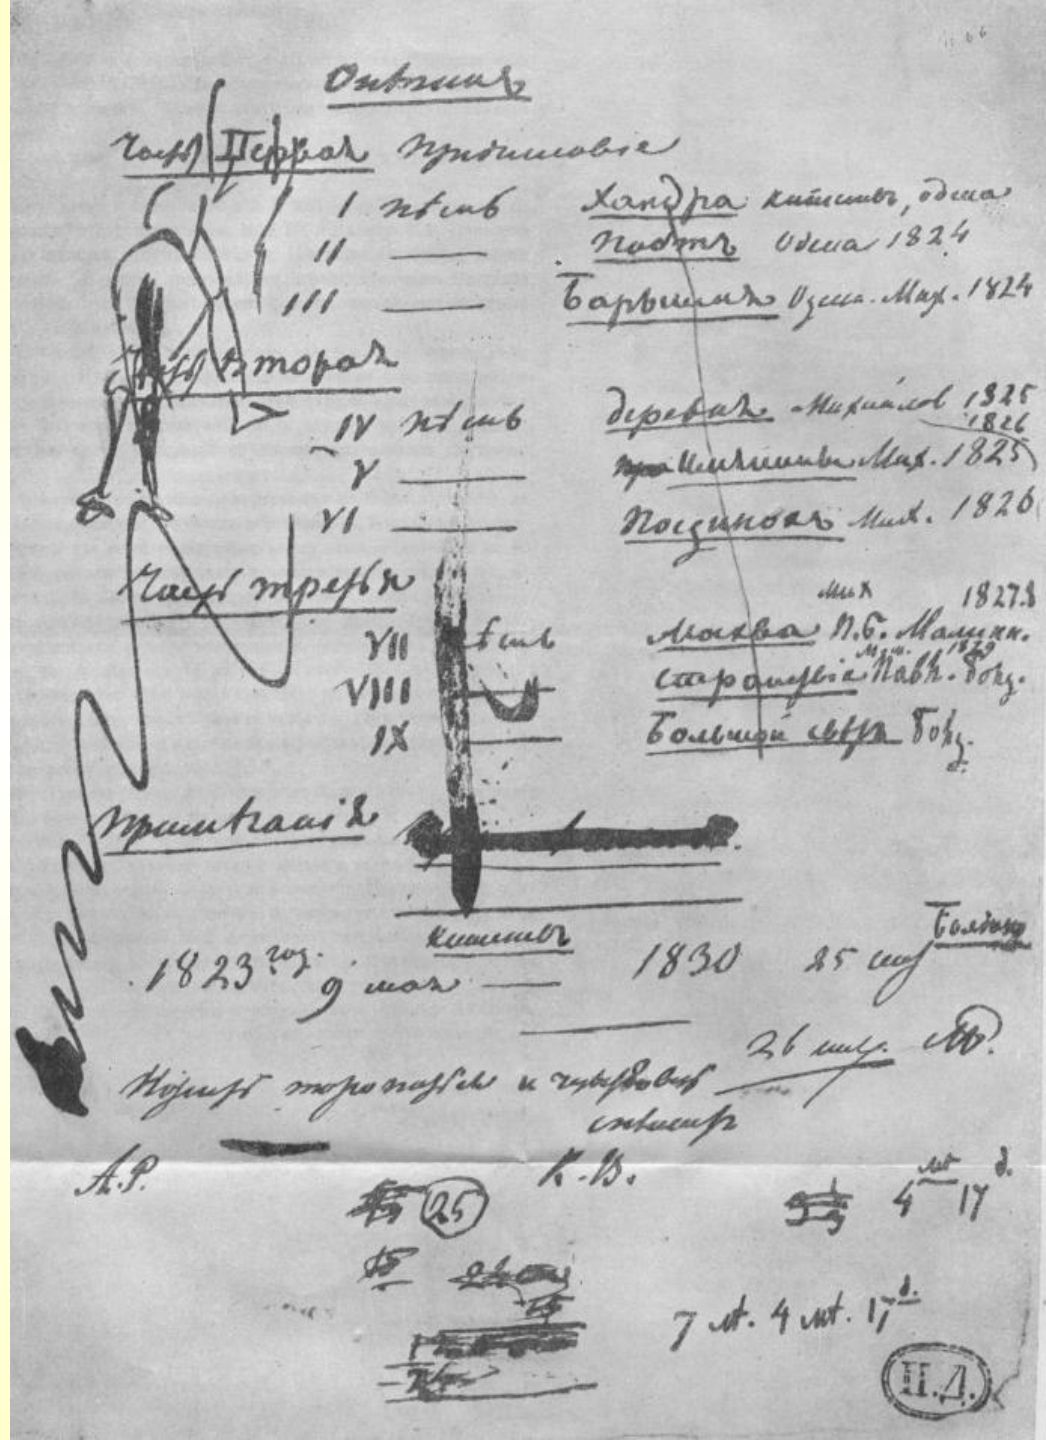 Онѣгинъ
Часть Первая Предисловіе
I пѣснь Хандра Кишеневъ, Одесса
II — Поэтъ Одесса 1824
III — Барышня Одесса. Мих. 1824
Часть Вторая
IV пѣснь Деревня Михайлов. 1825
1826
V — Имянины Мих. 1825
VI — Поединокъ Мих. 1826
Часть третья
Мих 1827.8
VII пѣснь Москва П.Б. Малинн.
1829
VIII — Странствіе Павл. Болд.
IX — Большой свѣтъ Болд.
Примѣчанія
Кишеневъ Болдино
1823 год. 9 мая — 1830 25 сен
26 сен. АП.
И жить торопится и чувствовать
спѣшитъ
К. В.
25
4 мѣ 17 д.
7 лѣт. 4 мѣ. 17 д.
П.Д.